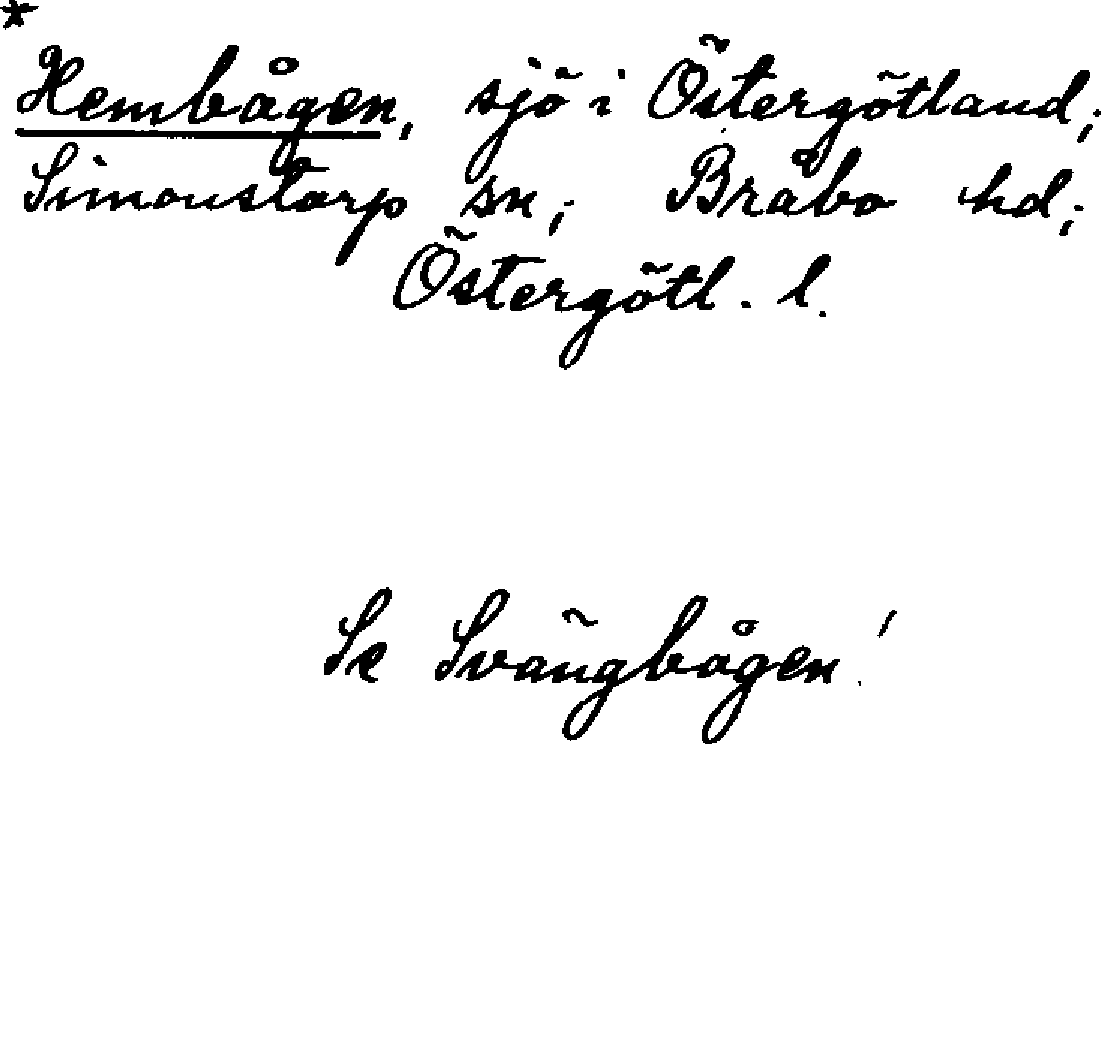 *
Hembågen, sjö i Östergötland;
Simonstorp sn; Bråbo hd;
Östergötl. l.
Se Svängbågen!